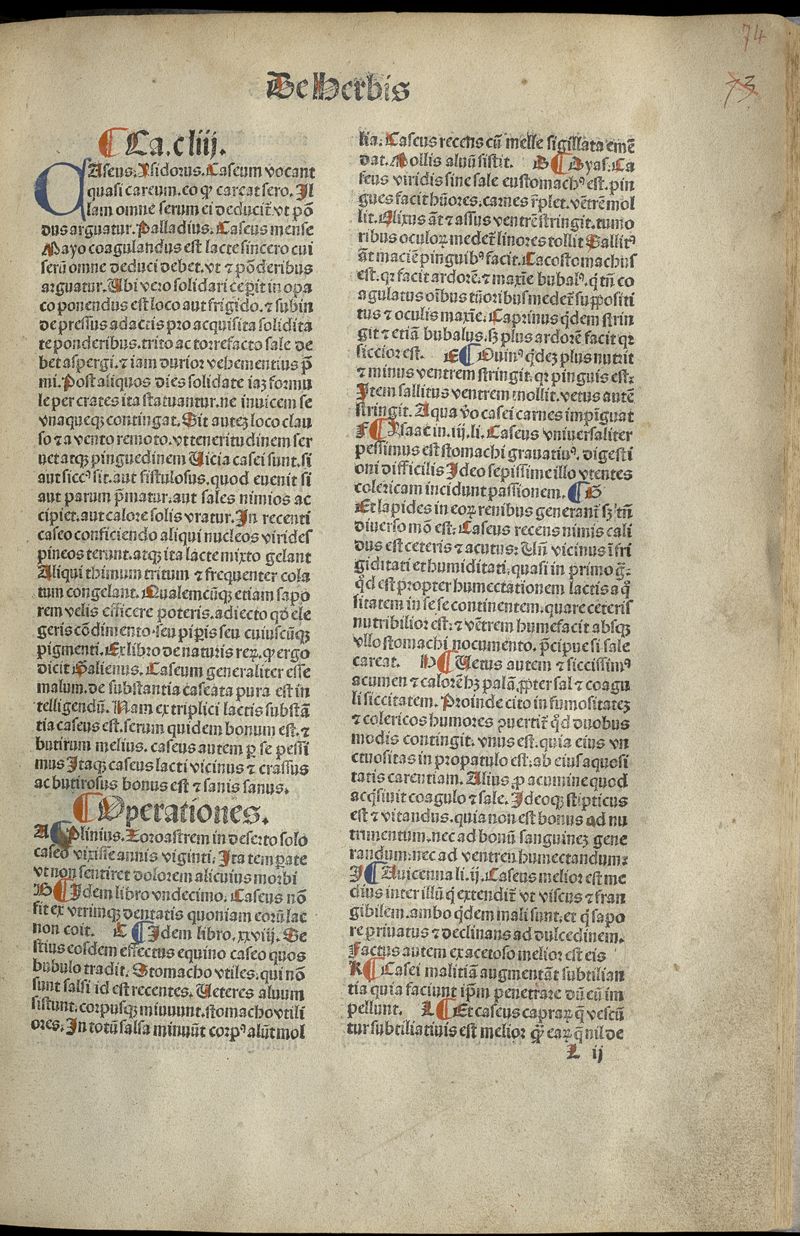 74
73
De Herbis
¶ Ca. cliij.
CAseus. Isidorus. Caseum vocant
quasi careum. eo qꝫ careat sero. Il
lam omne serum ei deducit̄. vt pō
dus arguatur. Palladius. Caseus mense
Mayo coagulandus est lacte sincero cui
serū omne deduci debet. vt ⁊ pōderibus
arguatur. Vbi vero solidari ceperit in opa
co ponendus est loco aut frigido. ⁊ subin
depressus adactis pro acquisita solidita
te ponderibus. trito ac torrefacto sale de
bet aspergi. ⁊ iam durior vehementius p̄
mi. Post aliquos dies solidate iaꝫ formu
le per crates ita statuantur. ne inuicem se
vnaqueqꝫ contingat. Sit auteꝫ loco clau
so ⁊ a vento remoto. vt teneritudinem ser
uet atqꝫ pinguedinem Vicia casei sunt. si
aut siccꝰ sit. aut fistulosus. quod euenit si
aut parum p̄matur. aut sales nimios ac
cipiet. aut calore solis vratur. In recenti
caseo conficiendo aliqui nucleos virides
pineos terunt. atqꝫ ita lacte mixto gelant
Aliqui thimum tritum ⁊ frequenter cola
tum congelant. Qualemcūqꝫ etiam sapo
rem velis efficere poteris. adiecto qd̄ ele
geris cōdimento. seu pipis seu cuiuscūqꝫ
pigmenti. Ex libro de naturis reꝝ. qꝫ ergo
dicit Galienus. Caseum generaliter esse
malum. de substantia caseata pura est in
telligendū. Nam ex triplici lactis substā
tia caseus est. serum quidem bonum est. ⁊
butirum melius. caseus autem p se pessi
mus Itaqꝫ caseus lacti vicinus ⁊ crassus
ac butirosus bonus est ⁊ sanis sanus.
¶ Operationes.
A ¶ Plinius. Zoroastrem in deserto solo
caseo vixisse annis viginti. Ita temperate
vt non sentiret dolorem alicuius morbi
B ¶ Idem libro vndecimo. Caseus nō
fit ex vtrimqꝫ dentatis quoniam eorū lac
non coit. C ¶ Idem libro. xxviij. Se
stius eosdem effectus equino caseo quos
bubulo tradit. Stomacho vtiles. qui nō
sunt salsi id est recentes. Veteres aluum
sistunt. corpusqꝫ minuunt. stomacho vtili
ores. In totū salsa minuūt corpꝰ alūt mol
lia. Caseus recens cū melle sigillata emē
dat. Mollis aluū sistit. D ¶ Dyas. Ca
seus viridis sine sale eustomachꝰ est. pin
gues facit hūores. carnes r̄plet. vētrē mol
lit. Elixus āt ⁊ assus ventrē stringit. tumo
ribus oculoꝝ medet̄ linores tollit Sallitꝰ
āt maciē pinguibꝰ facit. Cacostomachus
est. qꝛ facit ardorē. ⁊ maxīe bubalꝰ. qd̄m co
agulatus oībus tūoribus medet̄ supposi
tus ⁊ oculis maxīe. Caprinus qdem strin
git ⁊ etiā bubalus. sꝫ plus ardorē facit qꝛ
siccior est. E ¶ Ouinꝰ qdeꝫ plus nutrit
⁊ minus ventrem stringit. qꝛ pinguis est.
Item sallitus ventrem mollit. vetus autē
stringit. Aqua vo casei carnes impīguat
F ¶ Isaac in. iij. li. Caseus vniuersaliter
pessimus est stomachi grauatiuꝰ. digesti
oni difficilis Ideo sepissime illo vtentes
colericam incidunt passionem. ¶ G
Et lapides in eoꝝ renibus generant̄ sꝫ tn̄
diuerso mō est. Caseus recens nimis cali
dus est ceteris ⁊ acutus. Un̄ vicinus ē fri
giditati et humiditati. quasi in primo ḡ.
qd̄ est propter humectationem lactis aq̄
sitatem in sese continentem. quare ceteris
nutribilior est. ⁊ vētrem humefacit absqꝫ
vllo stomachi nocumento. p̄cipue si sale
careat. H ¶ Vetus autem ⁊ siccissimꝰ
acumen ⁊ calorē hꝫ palā. ꝓpter sal ⁊ coagu
li siccitatem. Proinde cito in fumositateꝫ
⁊ colericos humores ꝓuertit̄ qd̄ duobus
modis contingit. vnus est. quia eius vn
ctuositas in propatulo est. ab eius aquosi
tatis carentiam. Alius ꝓ acumine quod
acq̄siuit coagulo ⁊ sale. Ideoqꝫ stipticus
est ⁊ vitandus. quia non est bonus ad nu
trimentum. nec ad bonū sanguineꝫ gene
randum. nec ad ventrem humectandum.
I ¶ Auicenna li. ij. Caseus melior est me
dius inter illū q̄ extendit̄ vt viscus ⁊ fran
gibilem. ambo qdem mali sunt. et q̄ sapo
re priuatus ⁊ declinans ad dulcedinem.
Factus autem ex acetoso melior est eis
K ¶ Casei malitiā augmentāt subtilian
tia quia faciunt ip̄m penetrare dū eū im
pellunt. L ¶ Et caseus capraꝝ q̄ vescū
tur subtiliatiuis est melior qꝫ eaꝝ q̄ nil de
L ij